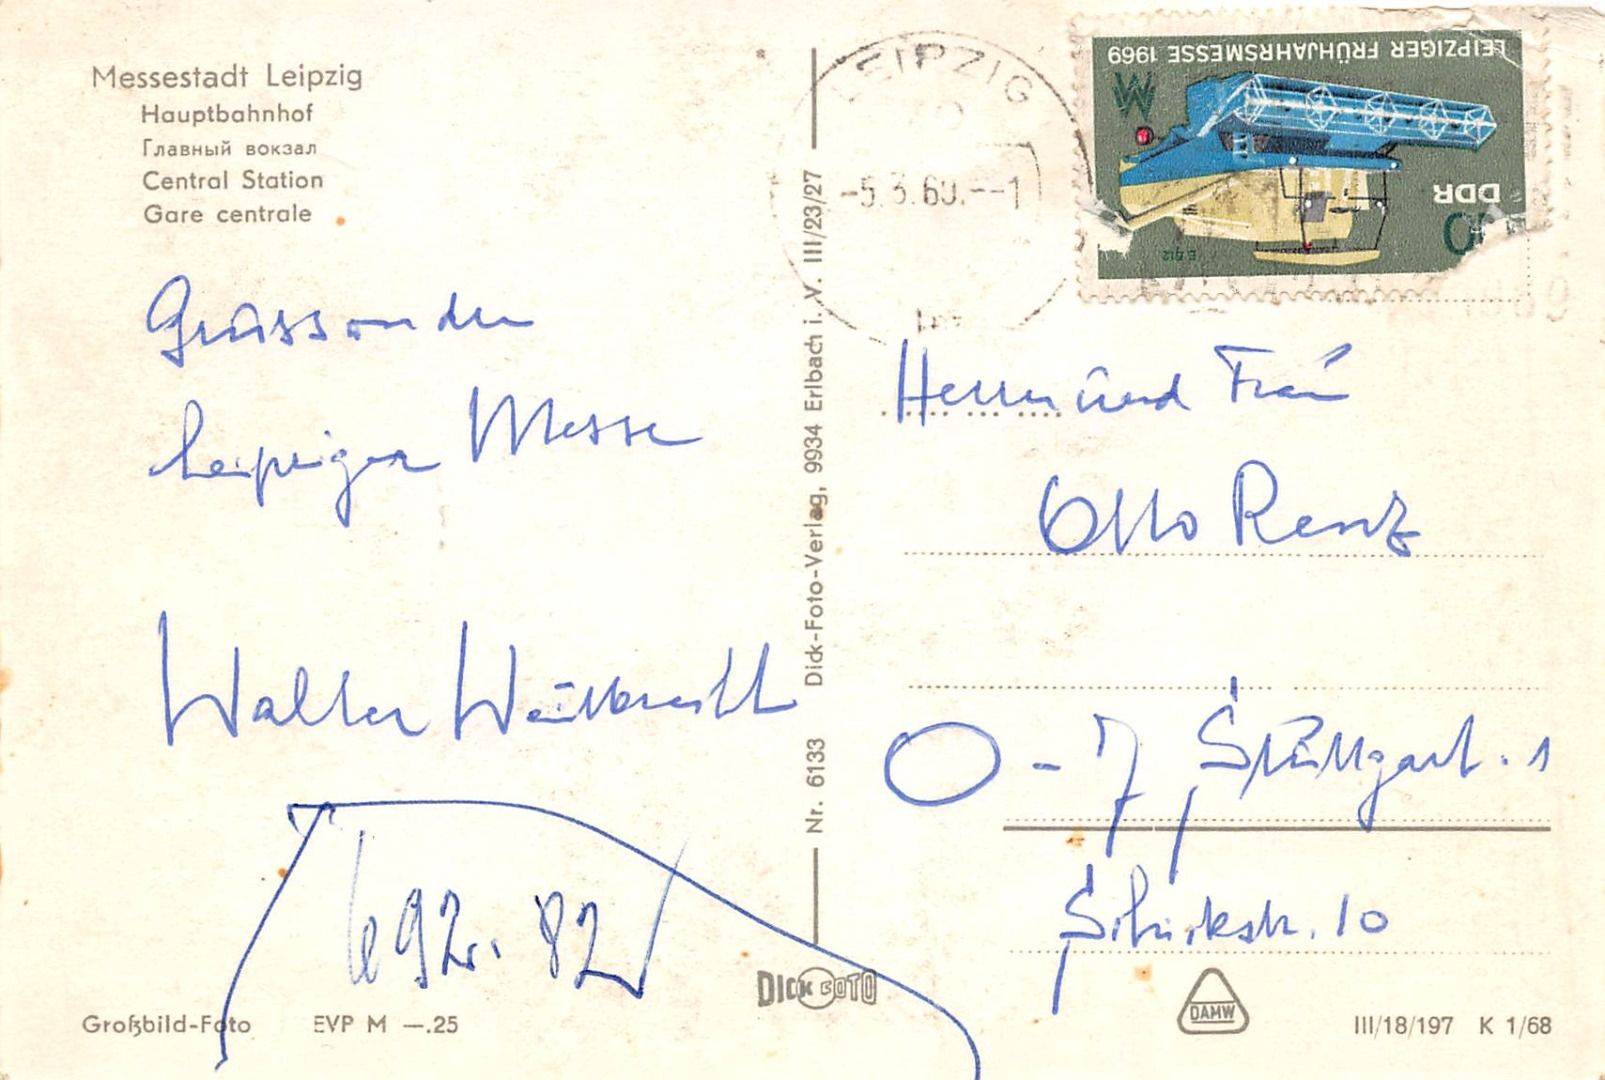 Messestadt Leipzig
Hauptbahnhof
Главный вокзал
Central Station
Gare centrale
Grüsse von der
Leipziger Messe
Walter
692. 82
Großbild-Foto EVP M —.25
Nr. 6133 Dick-Foto-Verlag, 9934 Erlbach i. V. III/23/27
DICK FOTO
LEIPZIG
-5.3.69.--1
LEIPZIGER FRÜHJAHRSMESSE 1969
DDR
E 512
Herrn und Frau
Otto Renz
D-7 Stuttgart. 1
10
DAMW
III/18/197 K 1/68